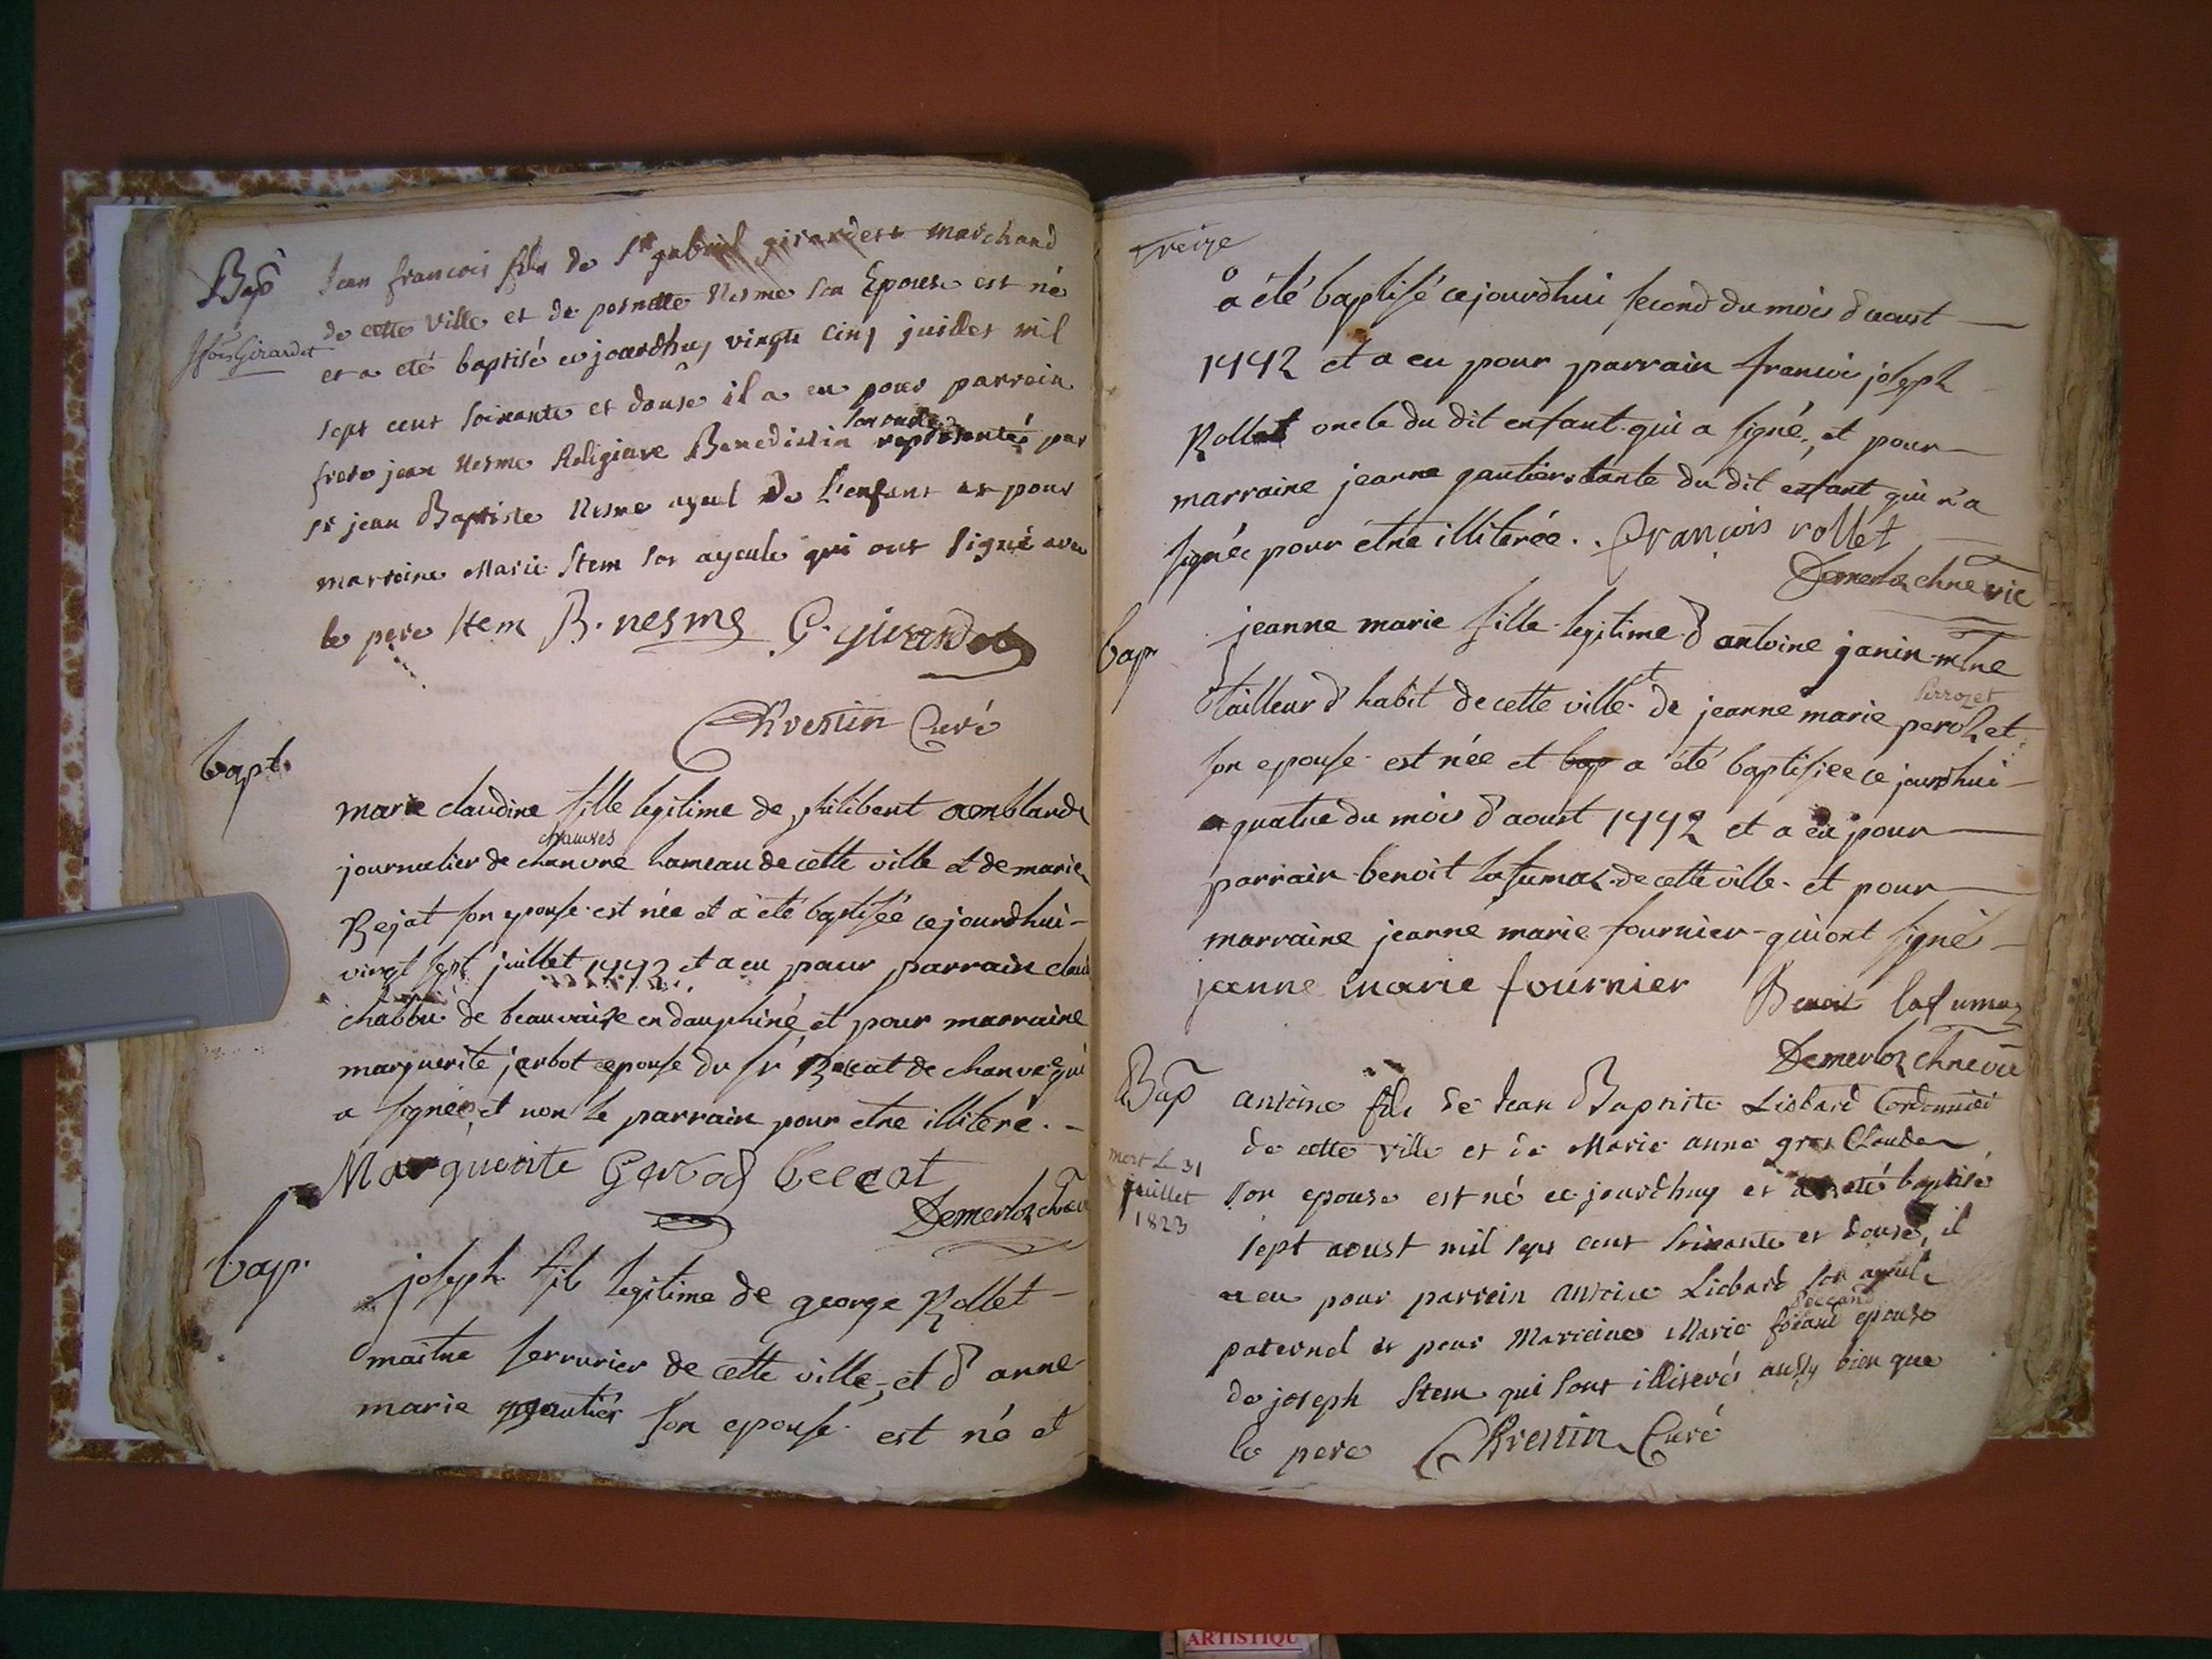 Bap
Jean francois fils de Sr gabriel girardet marchand
de cette Ville et de pernette Nesme son Epouse est né
Jfois Girardet
et a eté baptisé ce jourdhuy vingte cinq juillet mil
sept cent soixante et douse il a eu pour parrein
son oncle
frere jean Nesme Religieux Benedictin representé par
sr jean Baptiste Nesme ayeul de l'enfant et pour
marreine Marie Stem son ayeule qui ont signé avec
le pere Stem B. nesme G. girardet
Chrestin Curé
bapt.
marie claudine fille legitime de philibert amblard
chauvres
journalier de chanvre hameau de cette ville et de marie
Rejat son epouse est née et a été baptisée ce jourdhui
vingt sept juillet 1772 et a eu pour parrain
de beauvaise en dauphiné et pour marraine
marguerite jarbot epouse du sr de chanvre qui
a signée, et non le parrain pour etre illiteré.
Marguerite
Demerloz
bap.
joseph fils legitime de george Rollet
maitre serrurier de cette ville, et d anne
marie gautier son epouse est né et
treize
a été baptisé ce jourdhui second du mois d aoust
1772 et a eu pour parrain francoi joseph
Rollet oncle du dit enfant qui a signé, et pour
marraine jeanne gautier tante du dit enfant qui n'a
signée pour etre illiterée. françois rollet
Demerloz chne vic
bap
jeanne marie fille legitime d antoine janin mtre
Perrozet
tailleur d' habit de cette ville et de jeanne marie perozet
son epouse est née et bap a été baptisiee ce jourdhui
quatre du mois d'aoust 1772 et a eu pour
parrain benoit lafumaz de cette ville et pour
marraine jeanne marie fournier qui ont signé
jeanne marie fournier Benoit lafumaz
Demerloz chne vic
Bap
antoine fils de Jean Baptiste Liobard Cordonnier
de cette ville et de Marie anne gros Claude
mort le 31
juillet
1823
son epouse est né ce jourdhuy et a eté baptisé
sept aoust mil sept cent soixante et douse, il
a eu pour parrein antoine Liobard son ayeul
paternel et pour Marreine Marie epouse
de joseph Stem qui sont illiterés aussy bien que
le pere Chrestin Curé
ARTISTIQU